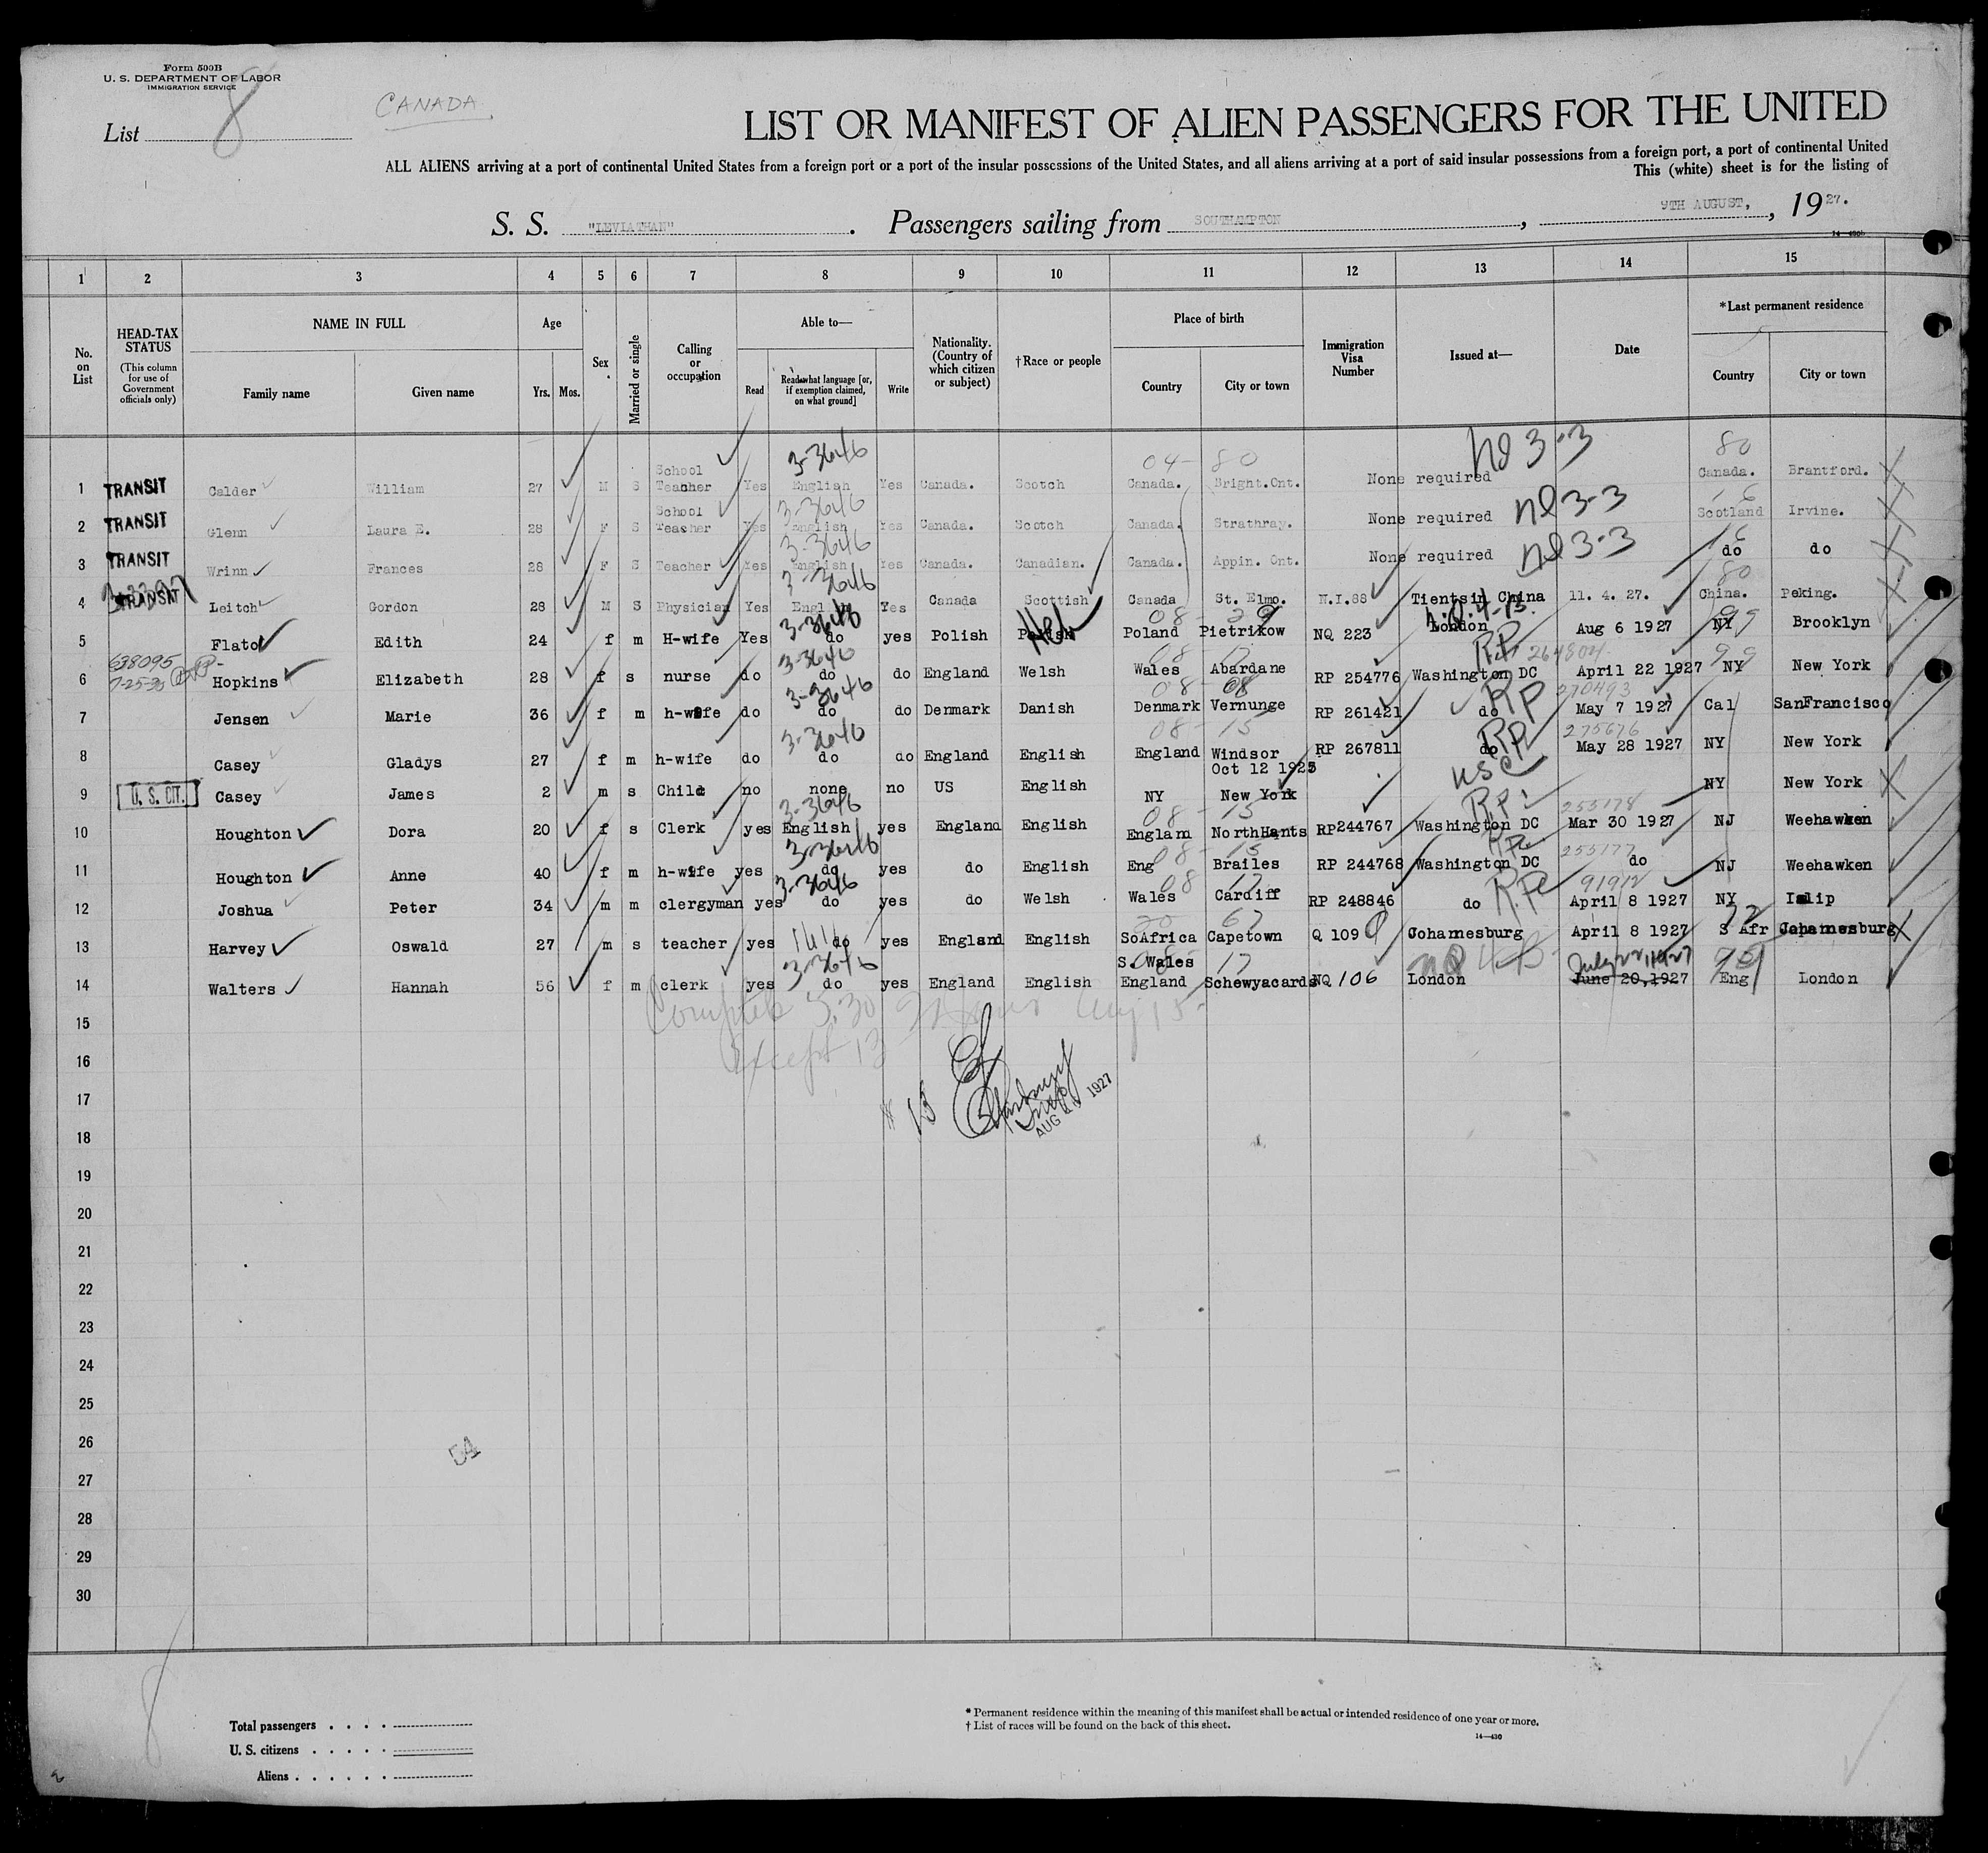 Form 500B
U. S. DEPARTMENT OF LABOR
IMMIGRATION SERVICE
List 8
CANADA
LIST OR MANIFEST OF ALIEN PASSENGERS FOR THE UNITED
ALL ALIENS arriving at a port of continental United States from a foreign port or a port of the insular possessions of the United States, and all aliens arriving at a port of said insular possessions from a foreign port, a port of continental United
This (white) sheet is for the listing of
S. S. "LEVIATHAN". Passengers sailing from SOUTHAMPTON, 9TH AUGUST, 1927.
14-430b
1 2 3 4 5 6 7 8 9 10 11 12 13 14 15
No. on List
HEAD-TAX STATUS (This column for use of Government officials only)
NAME IN FULL
Family name Given name
Age
Yrs. Mos.
Sex
Married or single
Calling or occupation
Able to—
Read Read what language [or, if exemption claimed, on what ground] Write
Nationality. (Country of which citizen or subject)
†Race or people
Place of birth
Country City or town
Immigration Visa Number
Issued at—
Date
*Last permanent residence
Country City or town
3-3646 04- 80 nl 3-3 80
1 TRANSIT Calder William 27 M S School Teacher Yes English Yes Canada. Scotch Canada. Bright.Ont. None required Canada. Brantford.
3-3646 nl 3-3
2 TRANSIT Glenn Laura E. 28 F S School Teacher Yes English Yes Canada. Scotch Canada. Strathray. None required Scotland Irvine.
3-3646 nl 3-3
3 TRANSIT Wrinn Frances 28 F S Teacher Yes English Yes Canada. Canadian. Canada. Appin. Ont. None required do do
3-3646 80
4 TRANSIT Leitch Gordon 28 M S Physician Yes English Yes Canada Scottish Canada St. Elmo. N.I.88 Tientsin China 11. 4. 27. China. Peking.
3-3646 Heb 08-29 99
5 Flato Edith 24 f m H-wife Yes do yes Polish Polish Poland Pietrikow NQ 223 London Aug 6 1927 NY Brooklyn
638095 3-3646 08-17 RP 264804 99
7-25-35
6 Hopkins Elizabeth 28 f s nurse do do do England Welsh Wales Abardane RP 254776 Washington DC April 22 1927 NY New York
3-3646 08-08 RP 270493
7 Jensen Marie 36 f m h-wife do do do Denmark Danish Denmark Vernunge RP 261421 do May 7 1927 Cal SanFrancisco
3-3646 08-15 RP 275676
8 Casey Gladys 27 f m h-wife do do do England English England Windsor RP 267811 do May 28 1927 NY New York
Oct 12 1925 USC
9 U. S. CIT. Casey James 2 m s Child no none no US English NY New York NY New York
3-3646 08-15 RP 255178
10 Houghton Dora 20 f s Clerk yes English yes England English Englam NorthHants RP244767 Washington DC Mar 30 1927 NJ Weehawken
3-3646 08-15 RP 255177
11 Houghton Anne 40 f m h-wife yes do yes do English Eng Brailes RP 244768 Washington DC do NJ Weehawken
3-3646 08 17 RP 91912
12 Joshua Peter 34 m m clergyman yes do yes do Welsh Wales Cardiff RP 248846 do April 8 1927 NY Islip
20 67 72
13 Harvey Oswald 27 m s teacher yes do yes England English SoAfrica Capetown Q 109 Johannesburg April 8 1927 S Afr Johannesburg
3-3646 S. Wales 08- 17 nQ 4-B July 22, 1927
14 Walters Hannah 56 f m clerk yes do yes England English England Schewyacards NQ 106 London June 20,1927 Eng London
15
Complete 5.30 Aug 15
16
except 13
17
# 13
AUG 1927
18
19
20
21
22
23
24
25
26
27
28
29
30
8
Total passengers . . . .
U. S. citizens . . . . .
Aliens . . . . . .
* Permanent residence within the meaning of this manifest shall be actual or intended residence of one year or more.
† List of races will be found on the back of this sheet.
14-430